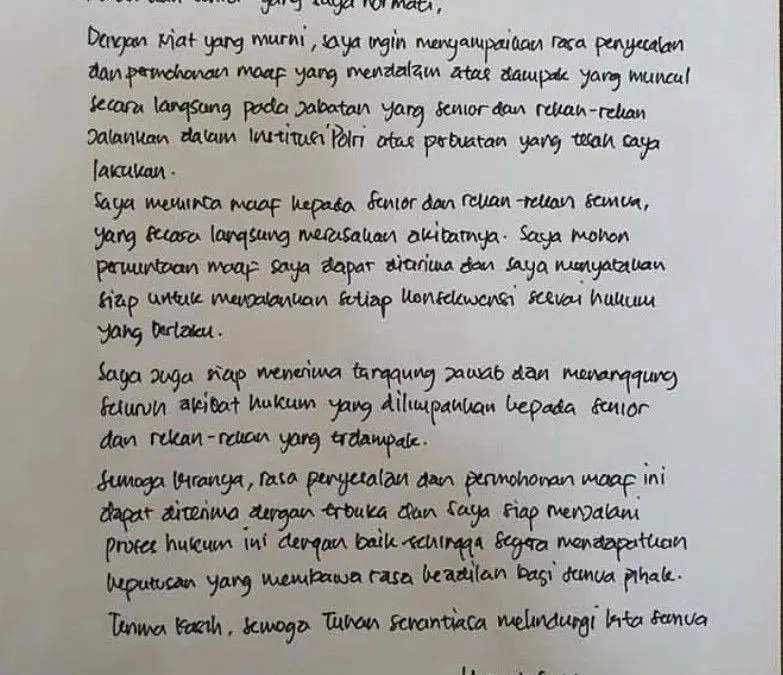 yang saya hormati,
Dengan Niat yang murni, saya ingin menyampaikan rasa penyesalan
dan permohonan maaf yang mendalam atas dampak yang muncul
secara langsung pada Jabatan yang senior dan rekan-rekan
Jalankan dalam Institusi Polri atas perbuatan yang telah saya
lakukan.
Saya meminta maaf kepada Senior dan rekan-rekan semua,
yang secara langsung merasakan akibatnya. Saya mohon
permintaan maaf saya dapat diterima dan saya menyatakan
siap untuk menjalankan setiap konsekwensi sesuai hukum
yang berlaku.
Saya Juga siap menerima tanggung Jawab dan menanggung
seluruh akibat hukum yang dilimpahkan kepada senior
dan rekan-rekan yang terdampak.
Semoga kiranya, rasa penyesalan dan permohonan maaf ini
dapat diterima dengan terbuka dan Saya siap menjalani
proses hukum ini dengan baik sehingga segera mendapatkan
keputusan yang membawa rasa keadilan bagi semua pihak.
Terima kasih, semoga Tuhan senantiasa melindungi kita semua